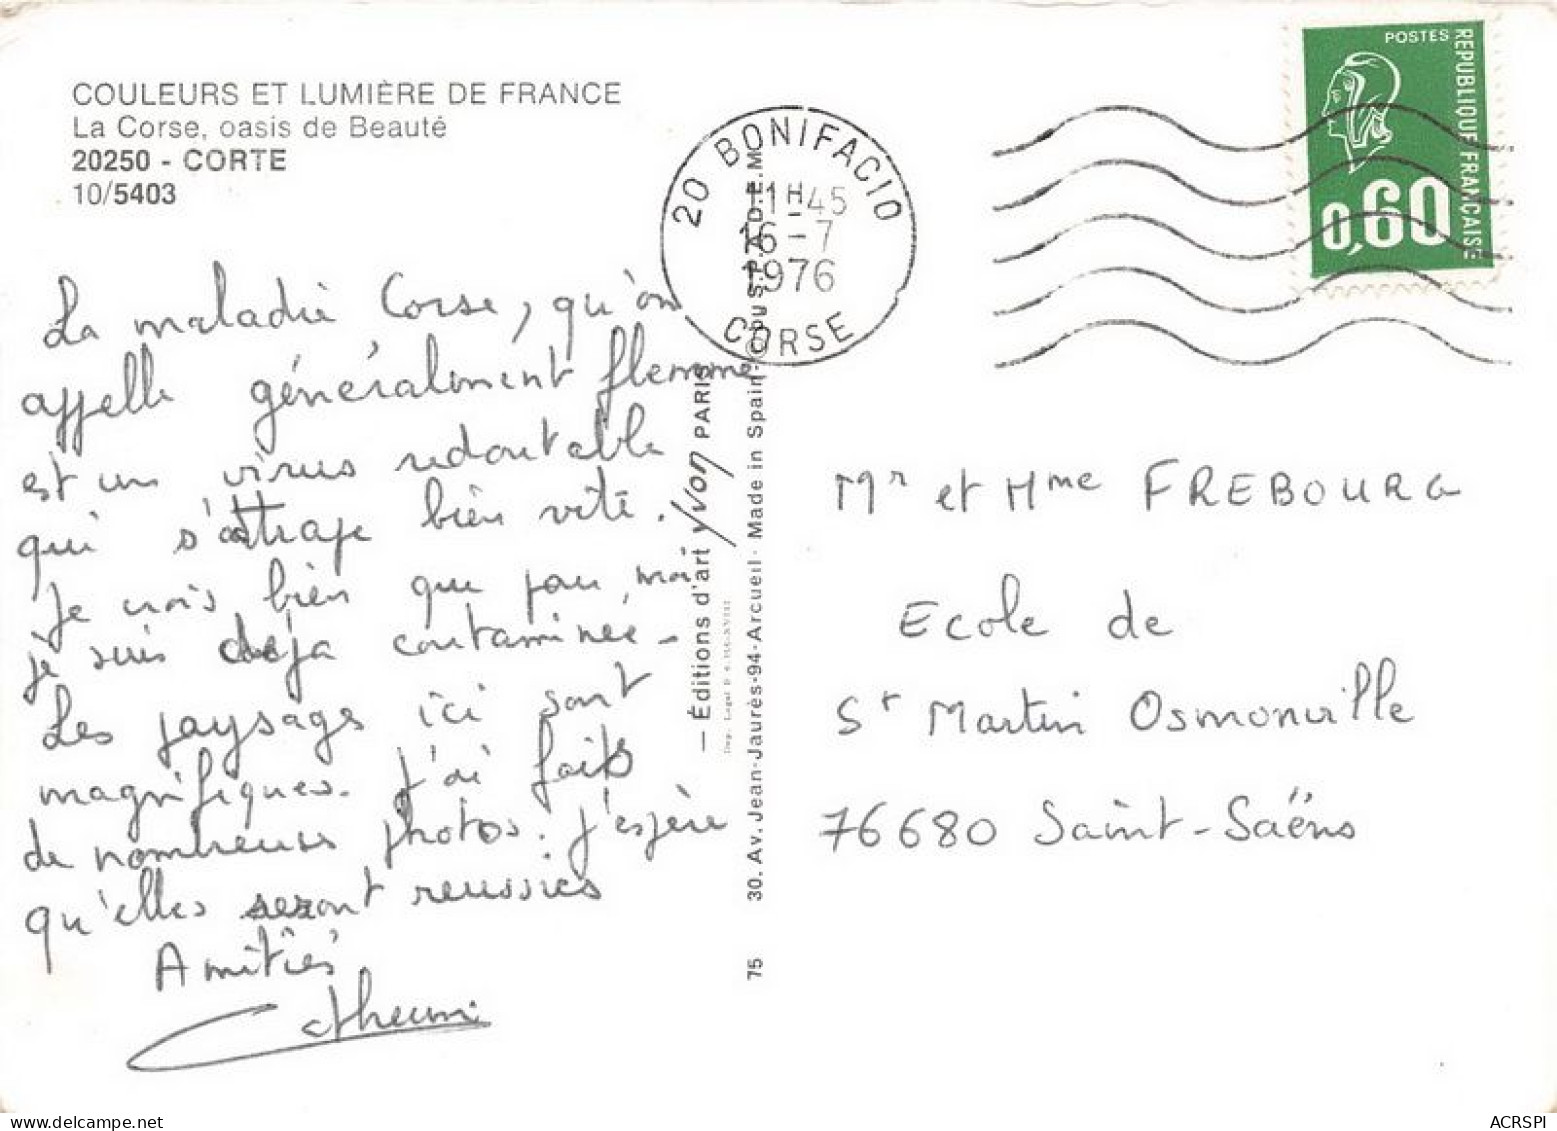 COULEURS ET LUMIÈRE DE FRANCE
La Corse, oasis de Beauté
20250 - CORTE
10/5403
La maladie Corse, qu'on
appelle généralement flemme
est un virus redoutable
qui s'attrape bien vite.
Je crois bien que pour moi
je suis déjà contaminée -
Les paysages ici sont
magnifiques. J'ai fait
de nombreuses photos. J'espère
qu'elles seront reussies
Amitiés
Catherine
20 BONIFACIO
11H45
16-7
1976
CORSE
POSTES
REPUBLIQUE FRANCAISE
0,60
— Éditions d'art yvon PARIS
75 30. Av. Jean-Jaurès-94-Arcueil - Made in Spain
Mr et Mme FREBOURG
Ecole de
St Martin Osmonville
76680 Saint-Saëns
ACRSPI